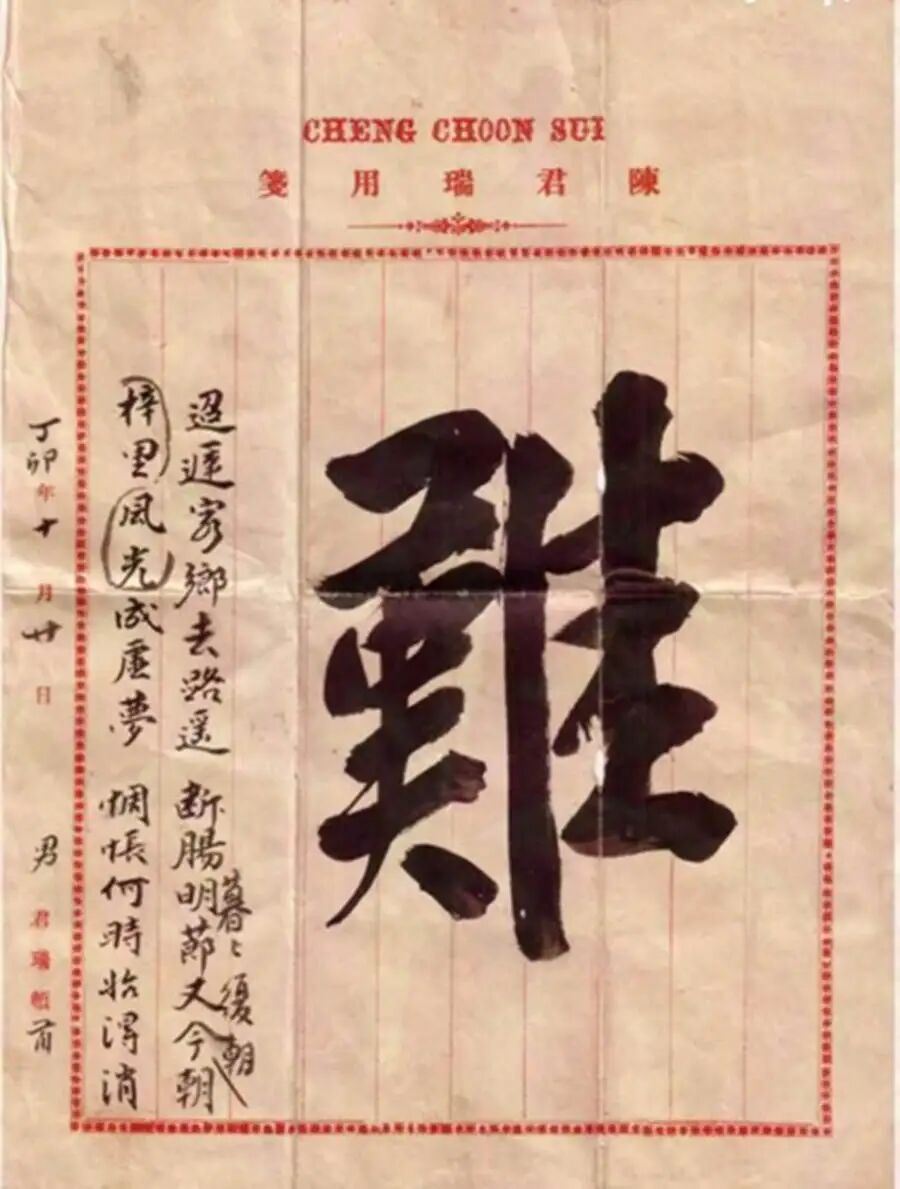 CHENG CHOON SUI
陳君瑞用箋
難
迢遞客鄉去路遥 断腸明節又今朝
暮〻復朝
梓里風光成虚夢 惆悵何時始得消
丁卯年十月廿日 男 君瑞頓首